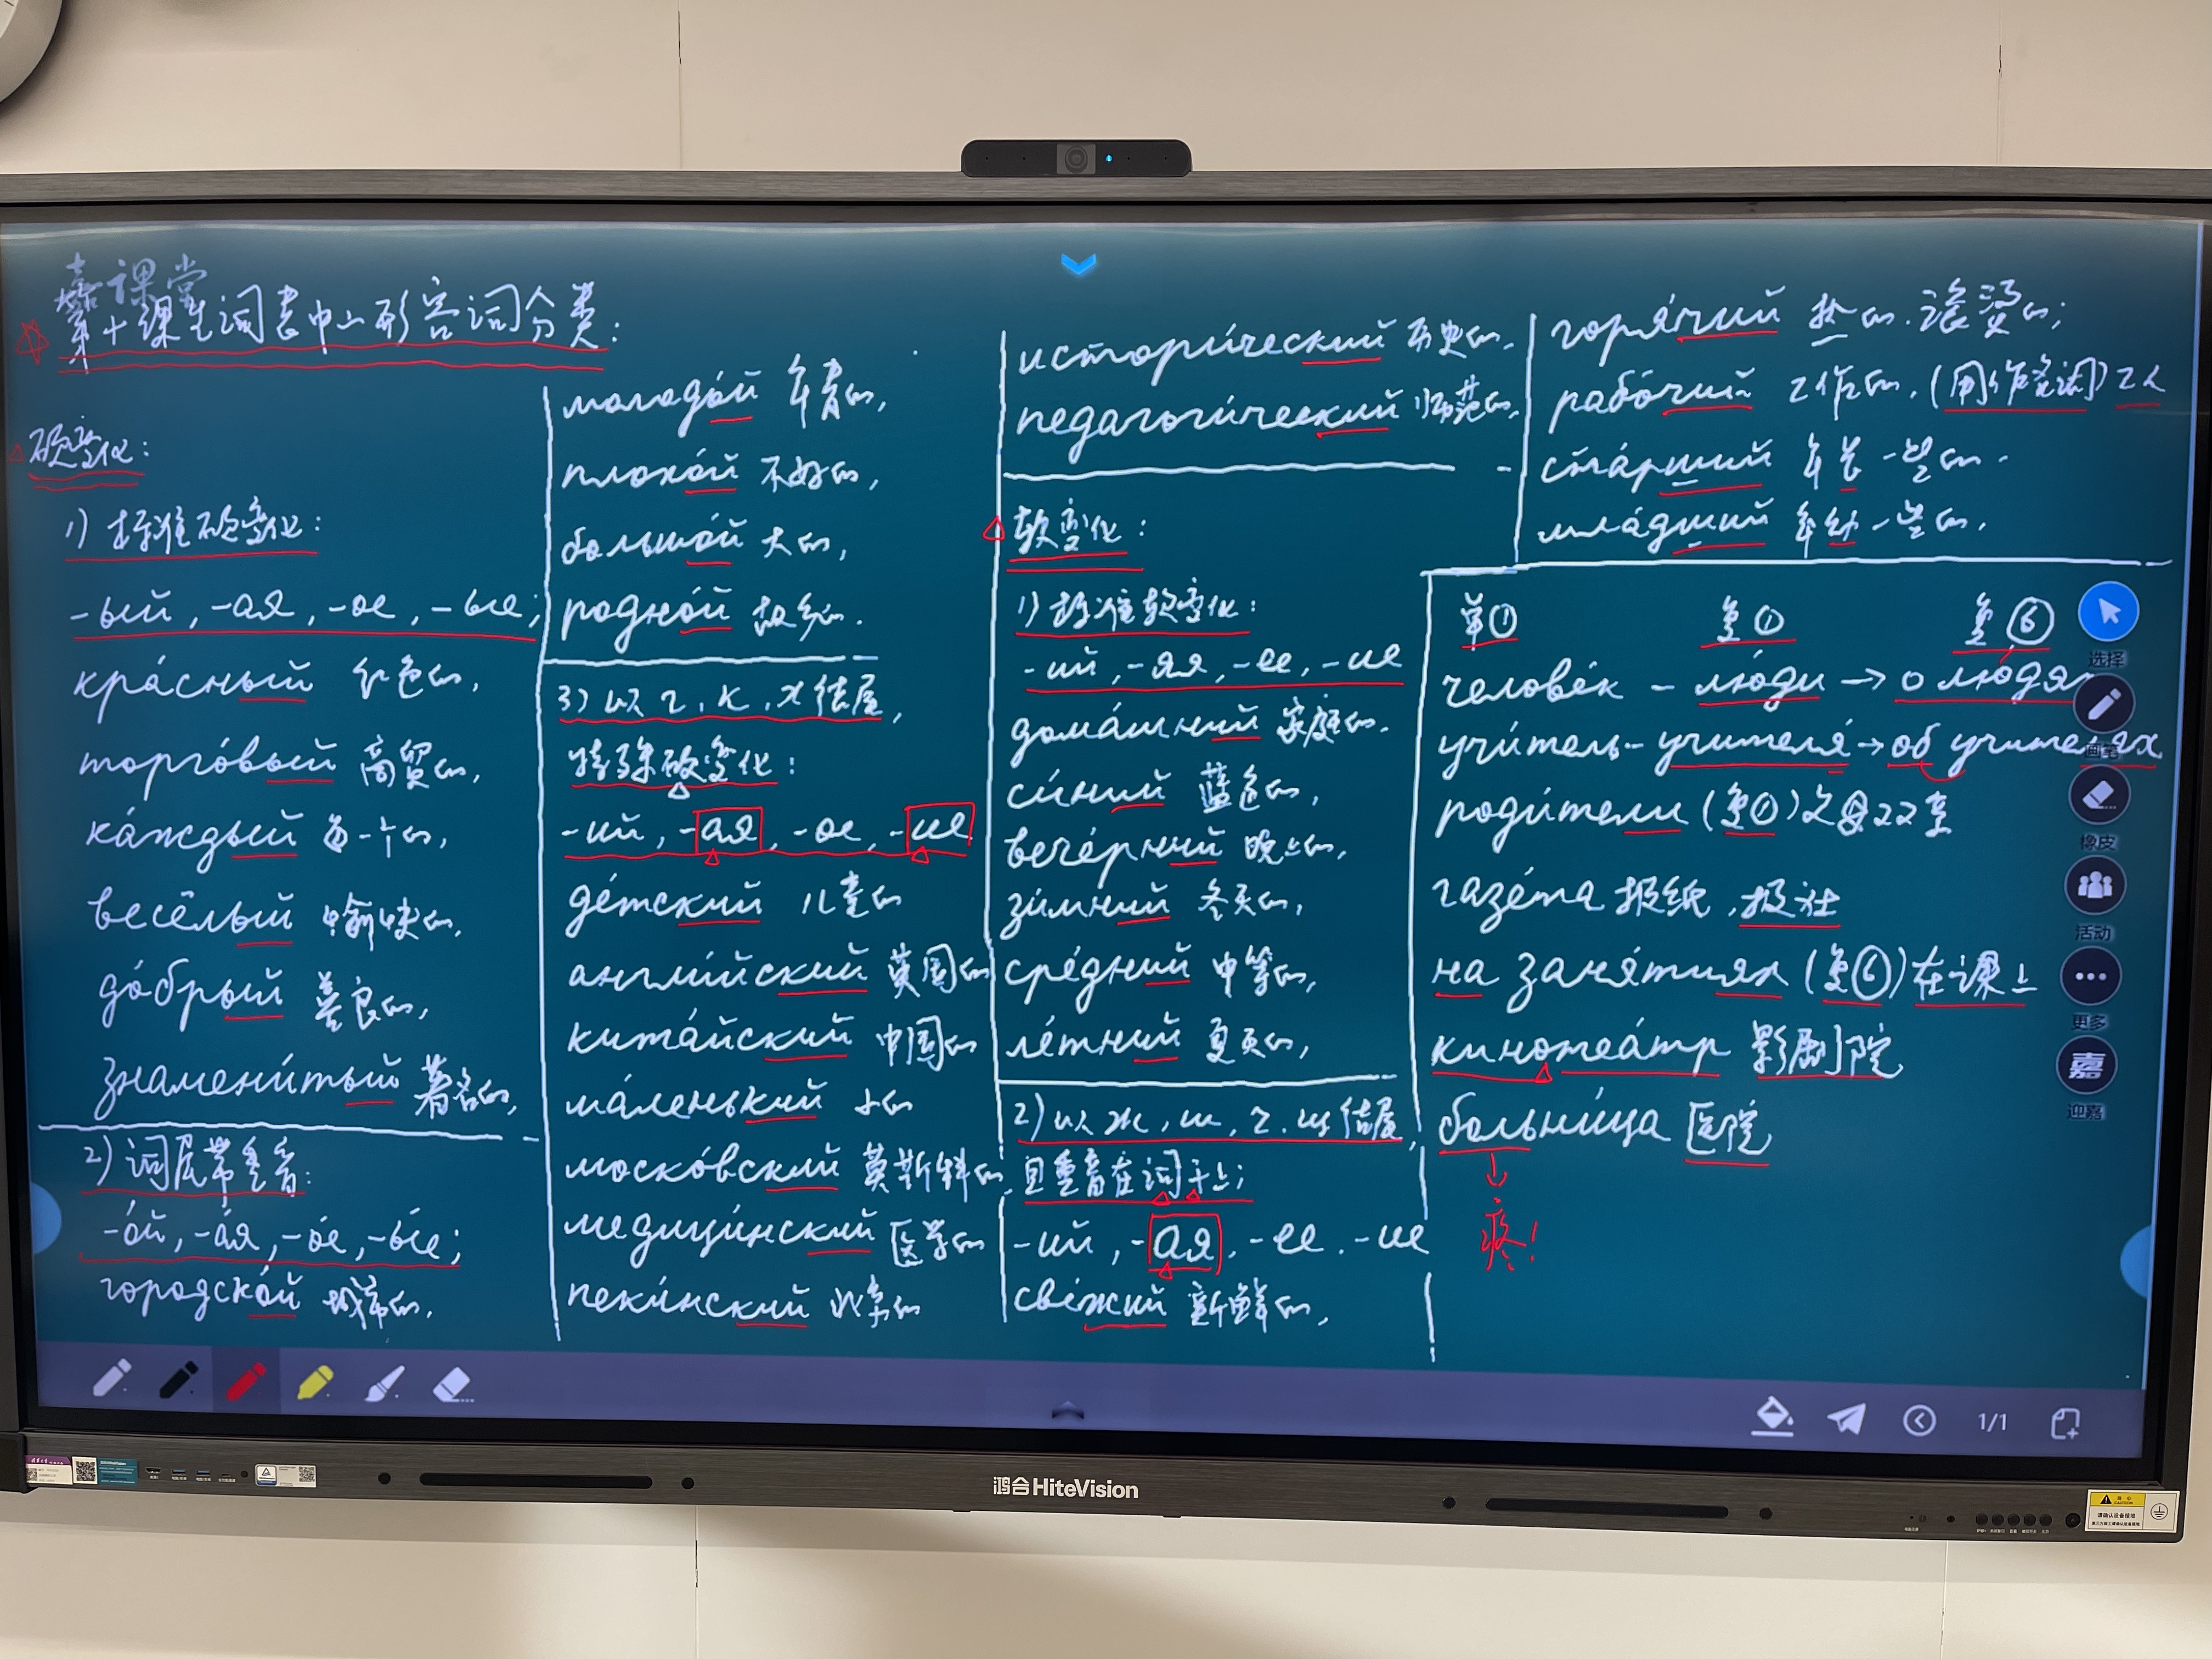 嘉课堂
第十课生词表中的形容词分类:
硬变化:
1) 标准硬变化:
-ый, -ая, -ое, -ые;
кра́сный 红色的,
торго́вый 商贸的,
ка́ждый 每一个的,
весёлый 愉快的,
до́брый 善良的,
знамени́тый 著名的,
2) 词尾带重音:
-о́й, -а́я, -о́е, -ы́е;
городско́й 城市的,
молодо́й 年青的,
плохо́й 不好的,
большо́й 大的,
родно́й 故乡的.
3) 以 г, к, х 结尾,
特殊硬变化:
-ий, -ая, -ое, -ие
де́тский 儿童的
англи́йский 英国的
кита́йский 中国的
ма́ленький 小的
моско́вский 莫斯科的
медици́нский 医学的
пеки́нский 北京的
истори́ческий 历史的,
педагоги́ческий 师范的,
软变化:
1) 标准软变化:
-ий, -яя, -ее, -ие
дома́шний 家庭的,
си́ний 蓝色的,
вече́рний 晚上的,
зи́мний 冬天的,
сре́дний 中等的,
ле́тний 夏天的,
2) 以 ж, ш, ч, щ 结尾,
且重音在词干上;
-ий, -ая, -ее, -ие
све́жий 新鲜的,
горя́чий 热的, 滚烫的;
рабо́чий 工作的, (用作名词) 工人
ста́рший 年长一些的,
мла́дший 年幼一些的,
单① 复① 复⑥
челове́к - лю́ди → о лю́дях
учи́тель - учителя́ → об учителях
роди́тели (复①) 父母双亲
газе́та 报纸, 报社
на заня́тиях (复⑥) 在课上
кинотеа́тр 影剧院
больни́ца 医院
疼!
选择
画笔
橡皮
活动
更多
嘉
迎嘉
1/1
鸿合HiteVision